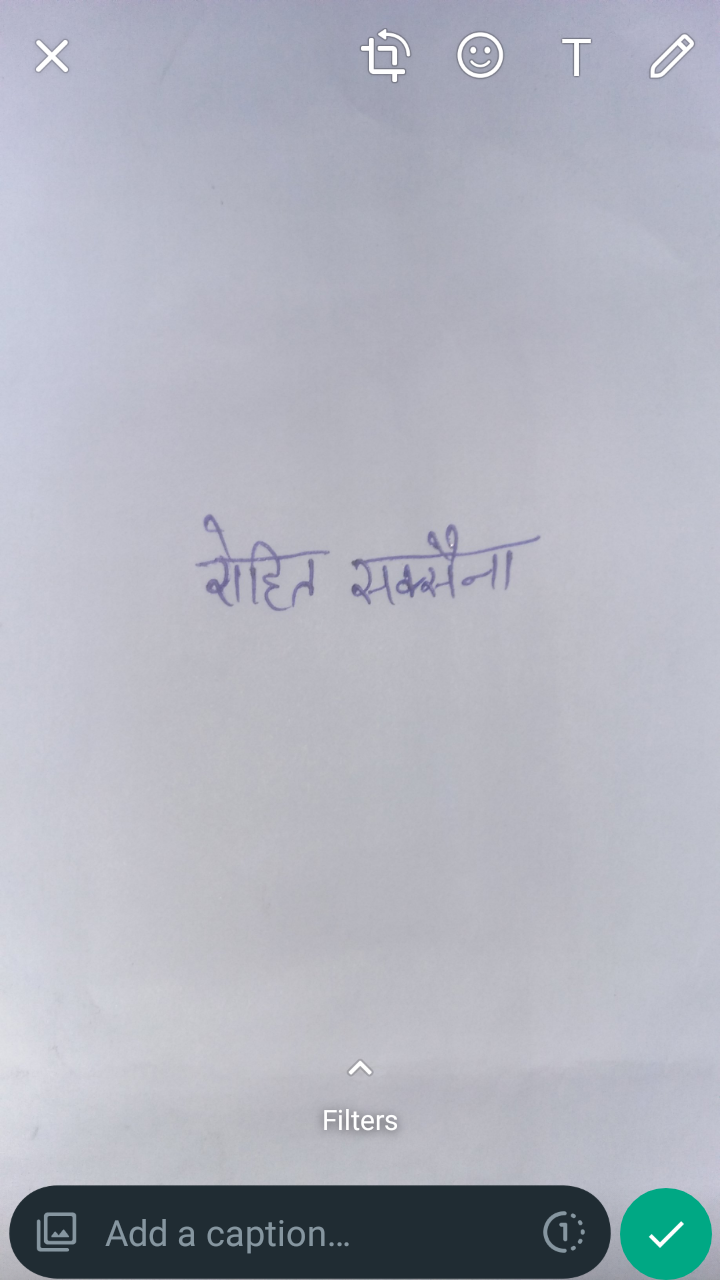 T
रोहित सक्सैना
Filters
Add a caption...
1